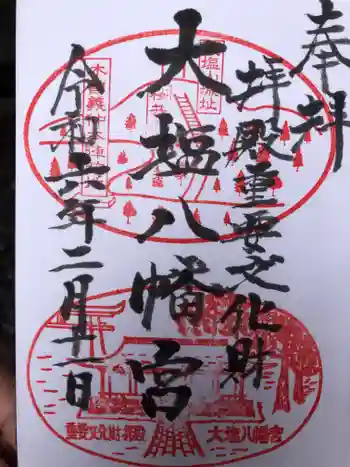 奉拝
拝殿重要文化財
大塩八幡宮
令和六年二月十一日
大塩山城址
木曽義仲本陣
重要文化財拝殿
大塩八幡宮